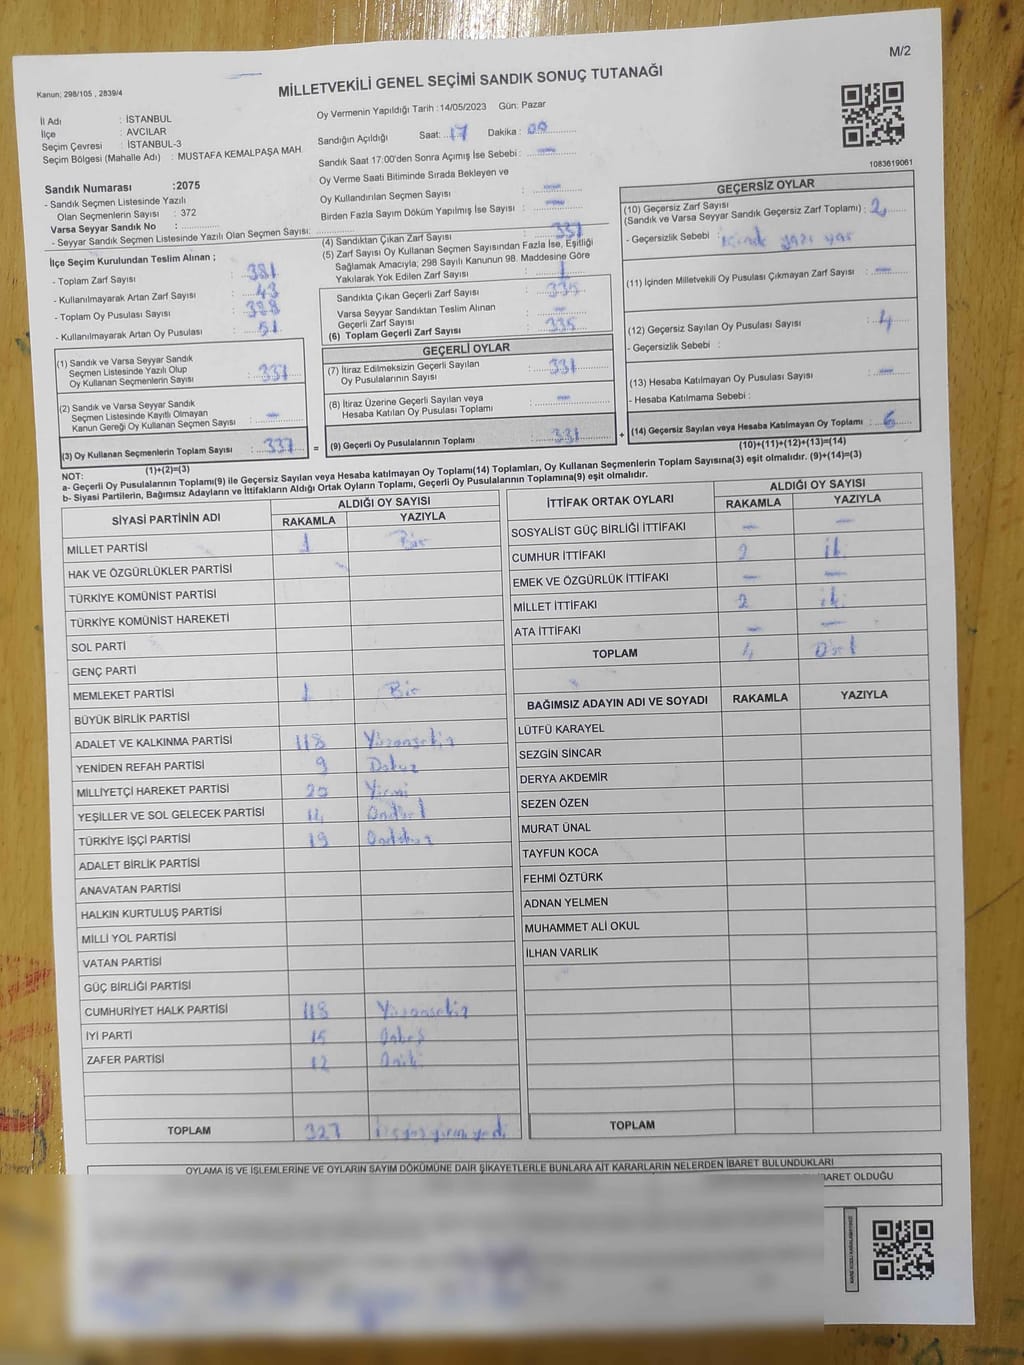 M/2
Kanun; 298/105 , 2839/4
MİLLETVEKİLİ GENEL SEÇİMİ SANDIK SONUÇ TUTANAĞI
İl Adı : İSTANBUL
İlçe : AVCILAR
Seçim Çevresi : İSTANBUL-3
Seçim Bölgesi (Mahalle Adı) : MUSTAFA KEMALPAŞA MAH.
Oy Vermenin Yapıldığı Tarih : 14/05/2023 Gün: Pazar
Sandığın Açıldığı Saat: 17 Dakika : 00
Sandık Saat 17:00'den Sonra Açımış İse Sebebi : —
Oy Verme Saati Bitiminde Sırada Bekleyen ve
Oy Kullandırılan Seçmen Sayısı : —
Birden Fazla Sayım Döküm Yapılmış İse Sayısı : —
1083619061
Sandık Numarası :2075
- Sandık Seçmen Listesinde Yazılı
Olan Seçmenlerin Sayısı : 372
Varsa Seyyar Sandık No :
- Seyyar Sandık Seçmen Listesinde Yazılı Olan Seçmen Sayısı:
İlçe Seçim Kurulundan Teslim Alınan ;
- Toplam Zarf Sayısı : 381
- Kullanılmayarak Artan Zarf Sayısı : 43
- Toplam Oy Pusulası Sayısı : 388
- Kullanılmayarak Artan Oy Pusulası : 51
(1) Sandık ve Varsa Seyyar Sandık
Seçmen Listesinde Yazılı Olup
Oy Kullanan Seçmenlerin Sayısı : 337
(2) Sandık ve Varsa Seyyar Sandık
Seçmen Listesinde Kayıtlı Olmayan
Kanun Gereği Oy Kullanan Seçmen Sayısı : —
(3) Oy Kullanan Seçmenlerin Toplam Sayısı : 337
(1)+(2)=(3)
(4) Sandıktan Çıkan Zarf Sayısı : 337
(5) Zarf Sayısı Oy Kullanan Seçmen Sayısından Fazla İse, Eşitliği
Sağlamak Amacıyla; 298 Sayılı Kanunun 98. Maddesine Göre
Yakılarak Yok Edilen Zarf Sayısı :
Sandıkta Çıkan Geçerli Zarf Sayısı : 335
Varsa Seyyar Sandıktan Teslim Alınan
Geçerli Zarf Sayısı : —
(6) Toplam Geçerli Zarf Sayısı : 335
GEÇERLİ OYLAR
(7) İtiraz Edilmeksizin Geçerli Sayılan
Oy Pusulalarının Sayısı : 331
(8) İtiraz Üzerine Geçerli Sayılan veya
Hesaba Katılan Oy Pusulası Toplamı : —
= (9) Geçerli Oy Pusulalarının Toplamı : 331 +
GEÇERSİZ OYLAR
(10) Geçersiz Zarf Sayısı
(Sandık ve Varsa Seyyar Sandık Geçersiz Zarf Toplamı) : 2
- Geçersizlik Sebebi : içinde yazı var
(11) İçinden Milletvekili Oy Pusulası Çıkmayan Zarf Sayısı : —
(12) Geçersiz Sayılan Oy Pusulası Sayısı : 4
- Geçersizlik Sebebi :
(13) Hesaba Katılmayan Oy Pusulası Sayısı : —
- Hesaba Katılmama Sebebi :
(14) Geçersiz Sayılan veya Hesaba Katılmayan Oy Toplamı : 6
(10)+(11)+(12)+(13)=(14)
NOT:
a- Geçerli Oy Pusulalarının Toplamı(9) ile Geçersiz Sayılan veya Hesaba katılmayan Oy Toplamı(14) Toplamları, Oy Kullanan Seçmenlerin Toplam Sayısına(3) eşit olmalıdır. (9)+(14)=(3)
b- Siyasi Partilerin, Bağımsız Adayların ve İttifakların Aldığı Ortak Oyların Toplamı, Geçerli Oy Pusulalarının Toplamına(9) eşit olmalıdır.
SİYASİ PARTİNİN ADI ALDIĞI OY SAYISI
RAKAMLA YAZIYLA
MİLLET PARTİSİ 1 Bir
HAK VE ÖZGÜRLÜKLER PARTİSİ
TÜRKİYE KOMÜNİST PARTİSİ
TÜRKİYE KOMÜNİST HAREKETİ
SOL PARTİ
GENÇ PARTİ
MEMLEKET PARTİSİ 1 Bir
BÜYÜK BİRLİK PARTİSİ
ADALET VE KALKINMA PARTİSİ 118 Yüzonsekiz
YENİDEN REFAH PARTİSİ 9 Dokuz
MİLLİYETÇİ HAREKET PARTİSİ 20 Yirmi
YEŞİLLER VE SOL GELECEK PARTİSİ 14 Ondört
TÜRKİYE İŞÇİ PARTİSİ 19 Ondokuz
ADALET BİRLİK PARTİSİ
ANAVATAN PARTİSİ
HALKIN KURTULUŞ PARTİSİ
MİLLİ YOL PARTİSİ
VATAN PARTİSİ
GÜÇ BİRLİĞİ PARTİSİ
CUMHURİYET HALK PARTİSİ 118 Yüzonsekiz
İYİ PARTİ 15 Onbeş
ZAFER PARTİSİ 12 Oniki
TOPLAM 327 üçyüzyirmiyedi
İTTİFAK ORTAK OYLARI ALDIĞI OY SAYISI
RAKAMLA YAZIYLA
SOSYALİST GÜÇ BİRLİĞİ İTTİFAKI — —
CUMHUR İTTİFAKI 2 iki
EMEK VE ÖZGÜRLÜK İTTİFAKI — —
MİLLET İTTİFAKI 2 iki
ATA İTTİFAKI — —
TOPLAM 4 Dört
BAĞIMSIZ ADAYIN ADI VE SOYADI RAKAMLA YAZIYLA
LÜTFÜ KARAYEL
SEZGİN SİNCAR
DERYA AKDEMİR
SEZEN ÖZEN
MURAT ÜNAL
TAYFUN KOCA
FEHMİ ÖZTÜRK
ADNAN YELMEN
MUHAMMET ALİ OKUL
İLHAN VARLIK
TOPLAM
OYLAMA İŞ VE İŞLEMLERİNE VE OYLARIN SAYIM DÖKÜMÜNE DAİR ŞİKAYETLERLE BUNLARA AİT KARARLARIN NELERDEN İBARET BULUNDUKLARI
İBARET OLDUĞU